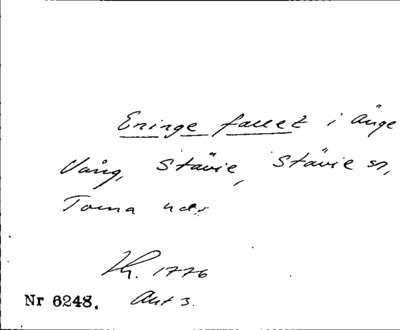 Eninge fallet i Änge
Vång, Stävie, Stävie sn,
Torna hd.
Lh. 1776
Nr 6248. Akt 3.